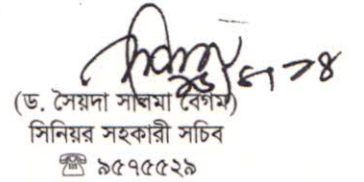 (ড. সৈয়দা সালমা বেগম)
সিনিয়র সহকারী সচিব
☎ ৯৫৭৫৫২৯